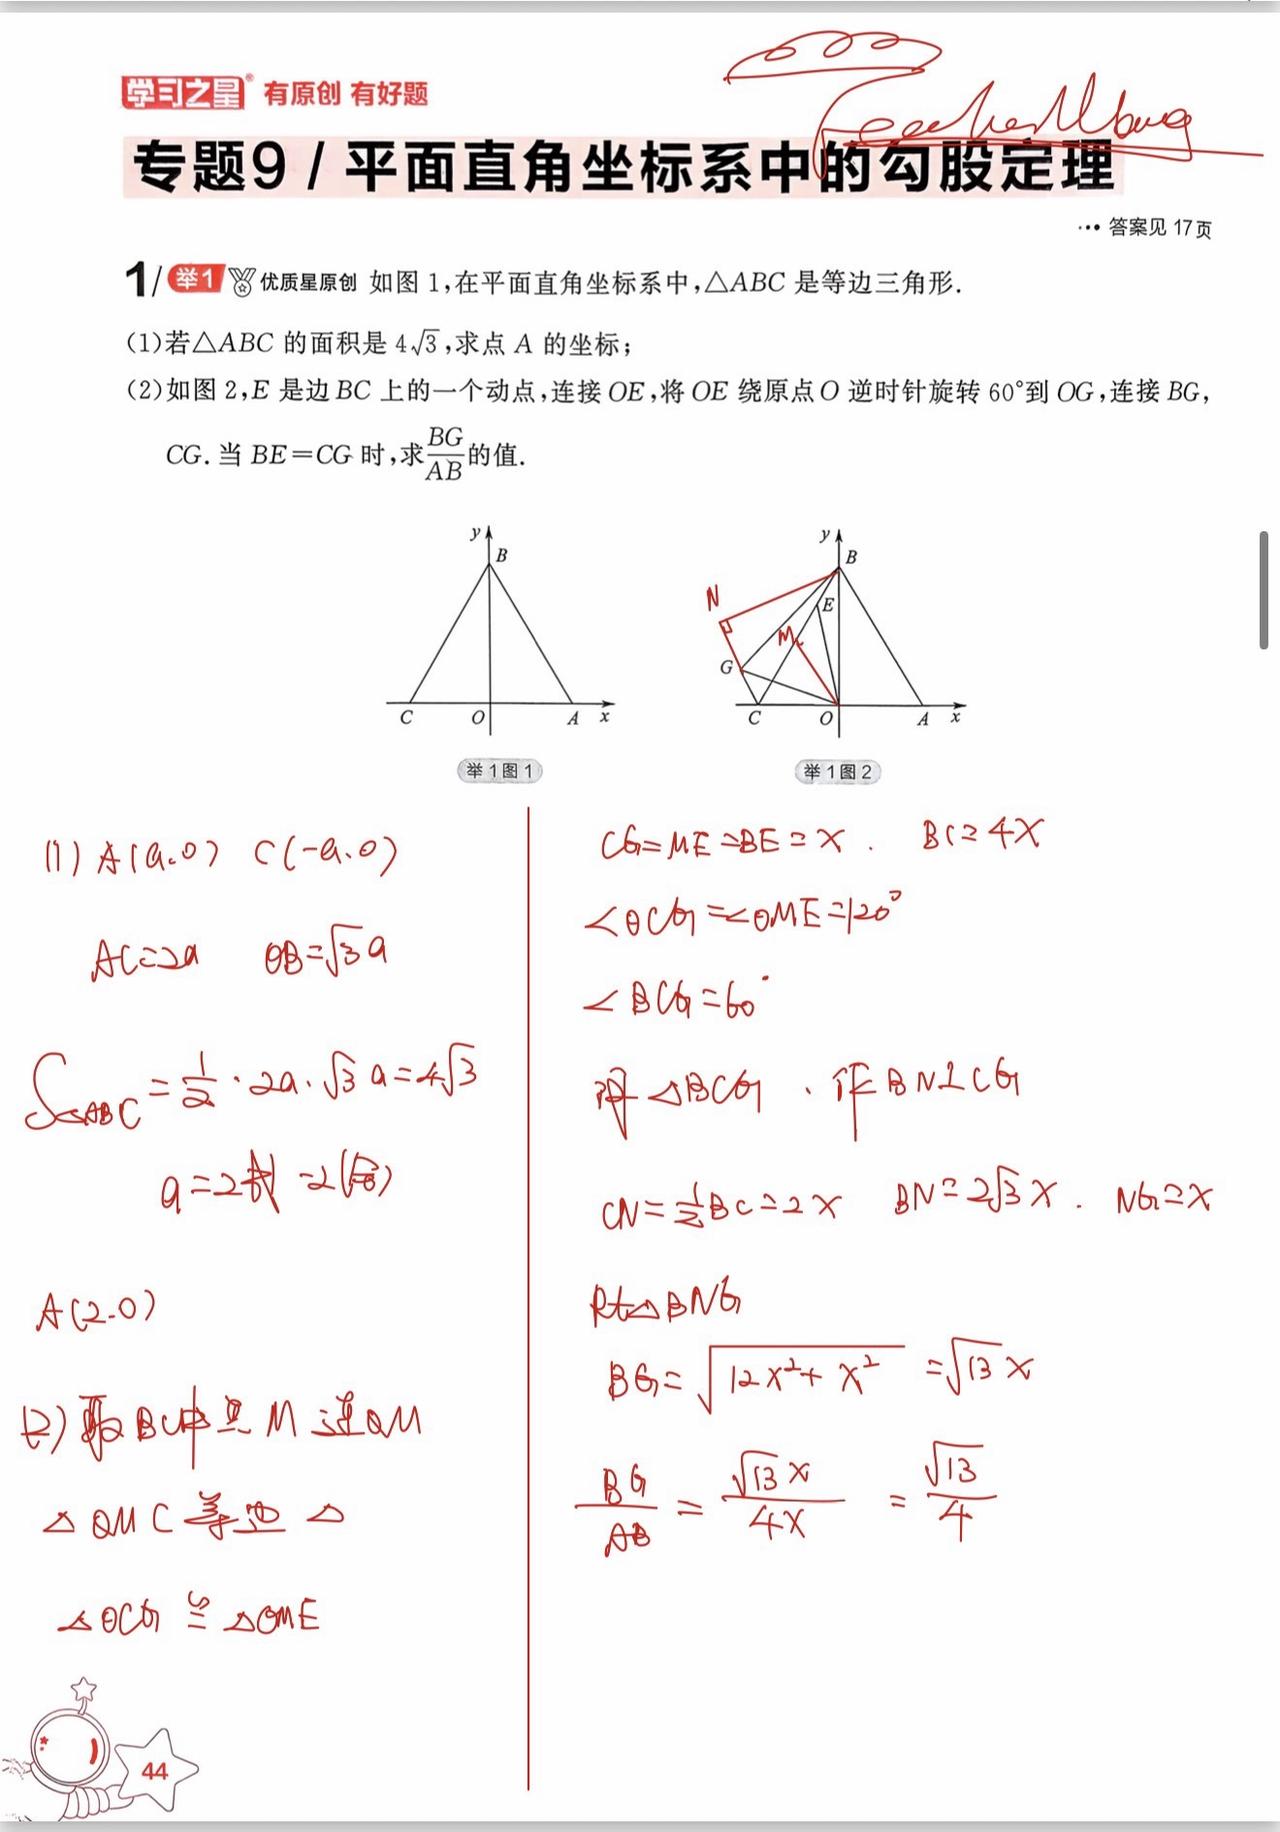 学习之星® 有原创 有好题
专题9 / 平面直角坐标系中的勾股定理
··· 答案见 17页
1/ 举1 优质星原创 如图 1,在平面直角坐标系中,△ABC 是等边三角形.
(1)若△ABC 的面积是 4√3,求点 A 的坐标;
(2)如图 2,E 是边 BC 上的一个动点,连接 OE,将 OE 绕原点 O 逆时针旋转 60°到 OG,连接 BG,
CG. 当 BE=CG 时,求 BG/AB 的值.
y B C O A x
y B N E M G C O A x
举 1 图 1
举 1 图 2
(1) A(a.0) C(-a.0)
AC=2a OB=√3a
S△ABC=1/2·2a·√3a=4√3
a=2
A(2.0)
(2) 取BC中点M 连OM
△OMC等边△
△OCG≌△OME
CG=ME=BE=x. BC=4x
∠OCG=∠OME=120°
∠BCG=60°
△BCG. 作BN⊥CG
CN=1/2BC=2x BN=2√3x. NG=x
Rt△BNG
BG=√(12x²+x²) =√13x
BG/AB = √13x/4x = √13/4
44